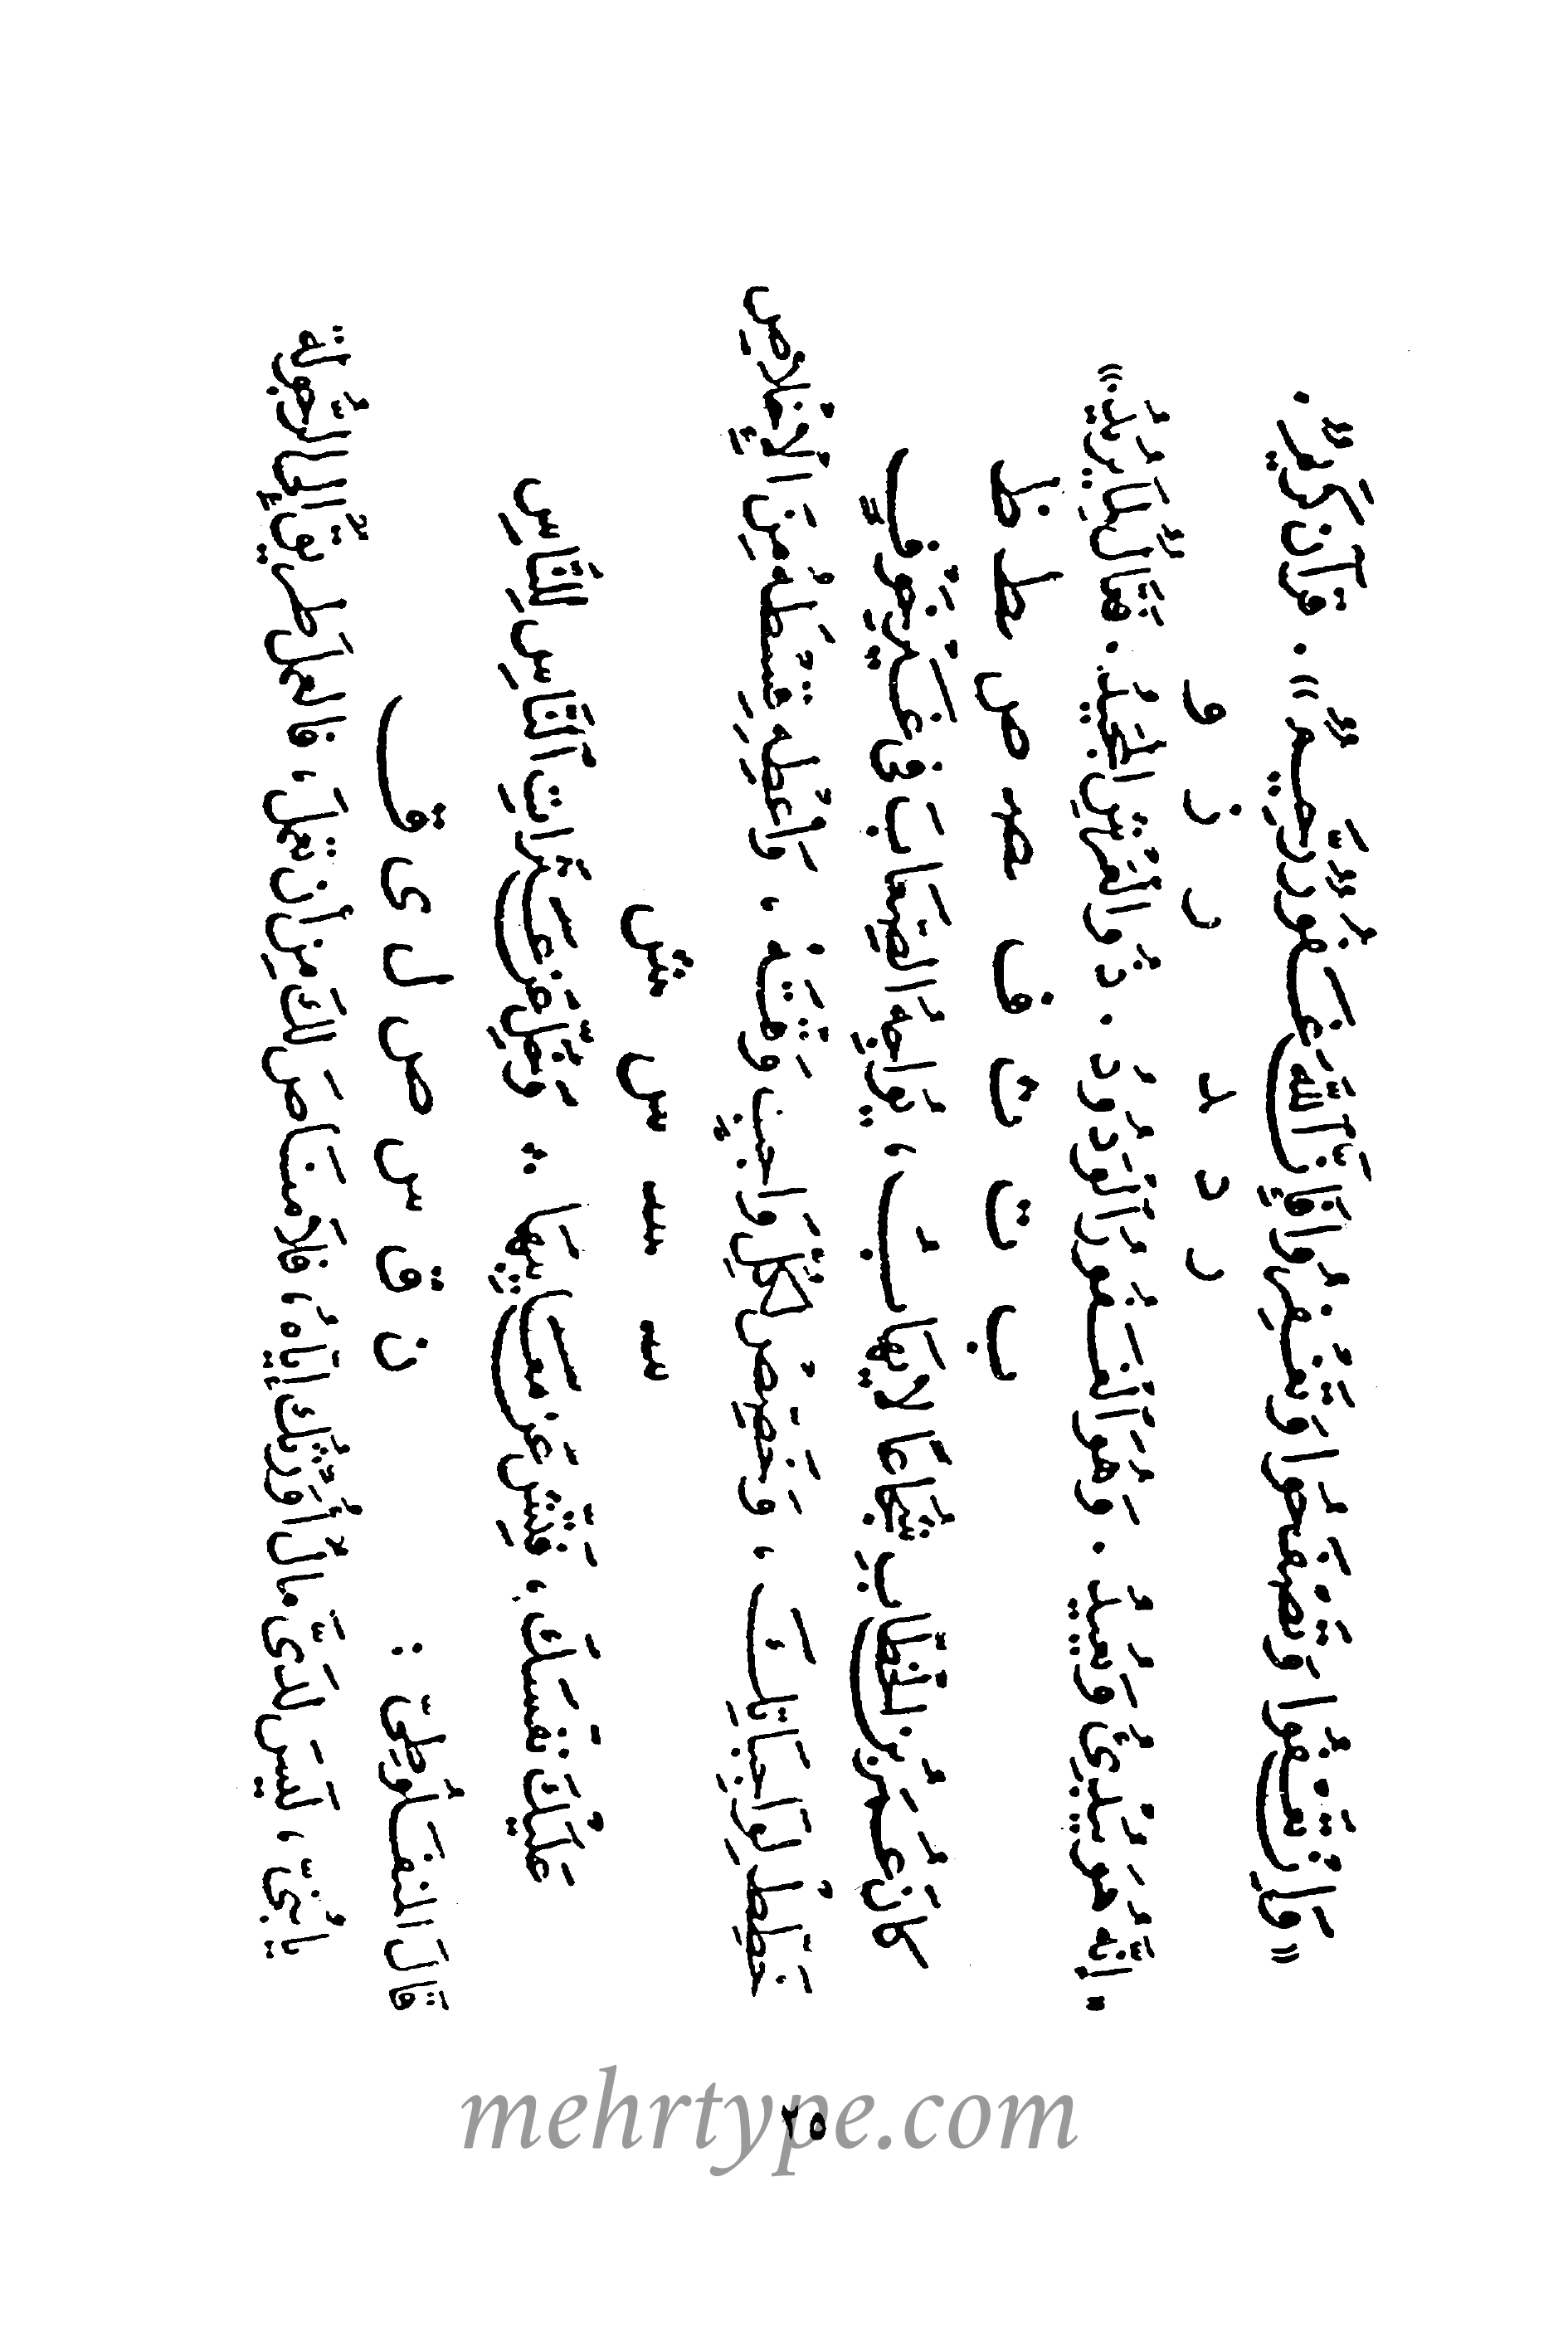 «وَإِنْ تَعْفُوا وَتَصْفَحُوا وَتَغْفِرُوا فَإِنَّ ٱللَّهَ غَفُورٌ رَّحِيمٌ». قرآن كَرِيمٌ.
ر د ـد ر ز و
«إِنَّهُ هُوَ يُبْدِئُ وَيُعِيدُ . وَهُوَ ٱلْغَفُورُ ٱلْوَدُودُ . ذُو ٱلْعَرْشِ ٱلْمَجِيدُ . فَعَّالٌ لِمَا يُرِيدُ.»
ب ت ث ف صـ ص ط ظ
كَانَ عُمَرُ بْنُ الْخَطَّابِ شُجَاعًا لَا يَهَابُ ، يُوَاجِهُ الصِّعَابَ فِى غَيْرِ خَوْفٍ
خَطِّطْ لِوَاجِبَاتِكَ ، وَخَصِّصْ لِكُلِّ وَاجِبٍ وَقْتَهُ ، وَأَعْطِهِ قِسْطَهُ مِنَ الْإِخْلَاصِ
سـ سـ س ش
عَلَيْكَ نَفْسَكَ ، فَتِّشْ عَنْ مَعَايِبِهَا .. وَخَلِّ عَنْ عَثَرَاتِ ٱلنَّاسِ لِلنَّاسِ
قَالَ المنفَلُوطِىّ : ن ق س ص ل ى ق
يا بُنىّ ، لَيسَ لدَىَّ مالٌ أُوَرِّثُك إيّاهُ ، فلا مَنَاصَ لكَ مِن أن تعملَ ، فالعملُ طريقٌ إلى الرُّجولة
٢٥
mehrtype.com